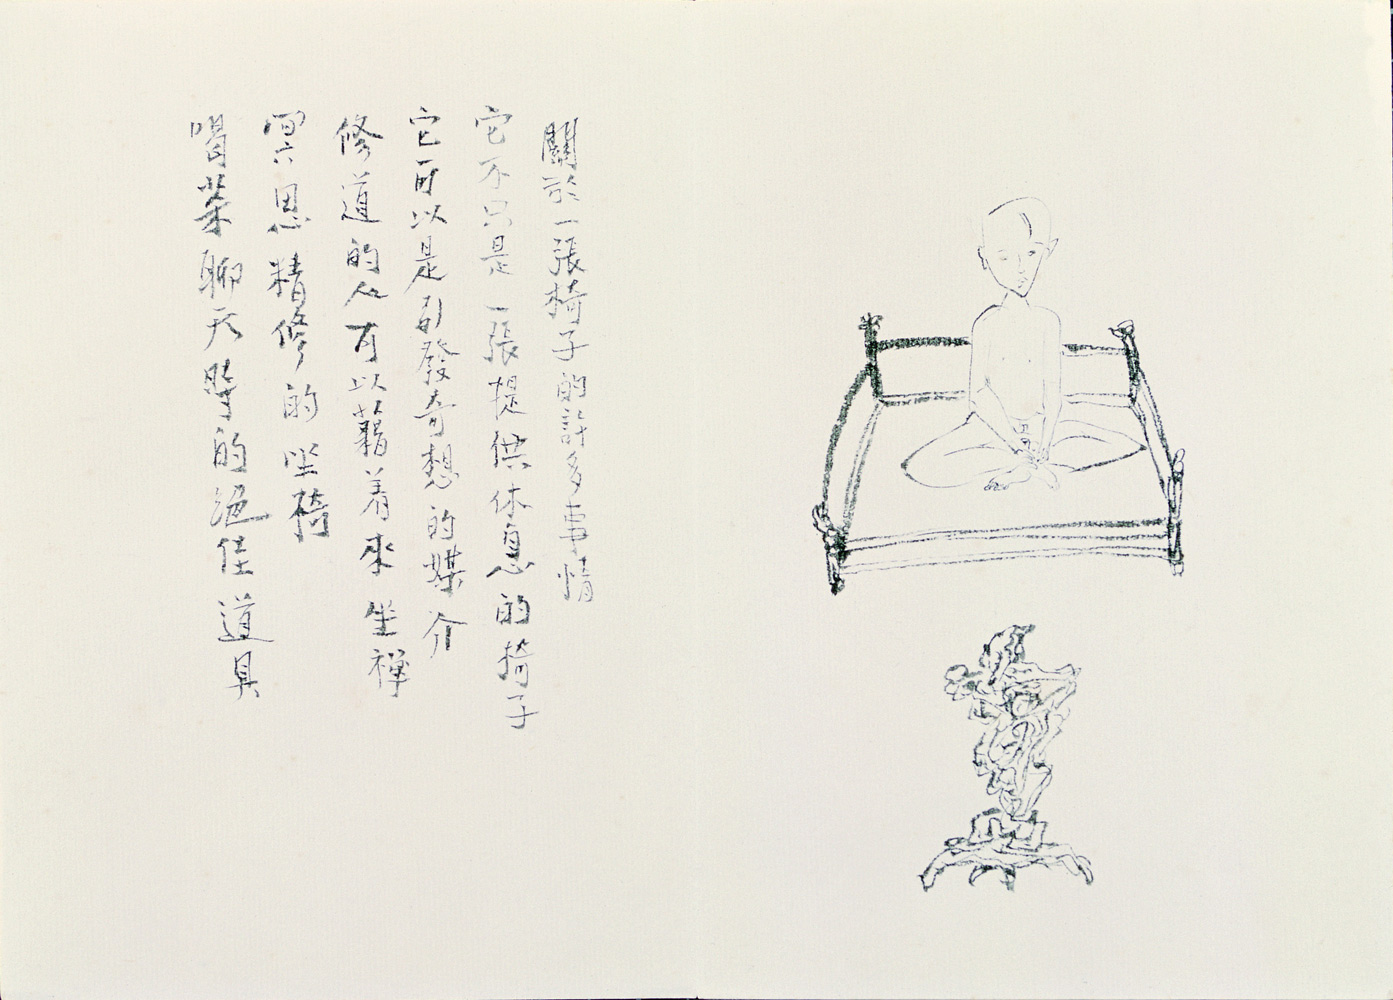 關於一張椅子的許多事情
它不只是一張提供休息的椅子
它可以是引發奇想的媒介
修道的人可以藉着來坐禪
冥思精修的坐椅
喝茶聊天 的絕佳道具